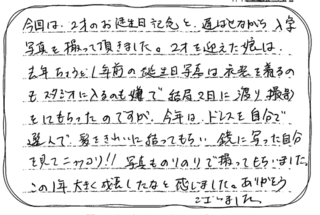 今回は、2才のお誕生日記念と、遅ばせながら入学
写真も撮って頂きました。2才を迎えた娘は、
去年ちょうど1年前の誕生日写真は、衣装を着るの
もスタジオに入るのも嫌で結局2日に渡り撮影
をしてもらったのですが、今年は、ドレスを自分で
選んで、髪をきれいに結ってもらい 鏡に写った自分
を見てニッコリ!! 写真ものりのりで撮ってもらいました。
この1年大きく成長したなと感じました。ありがとう
ございました。